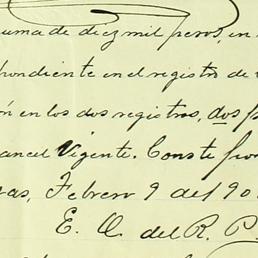 suma de diez mil pesos, en
pondiente en el registro de
ón en los dos registros, dos
ancel Vigente. Conste
as, Febrero 9 del 90
E. A. del R. P.